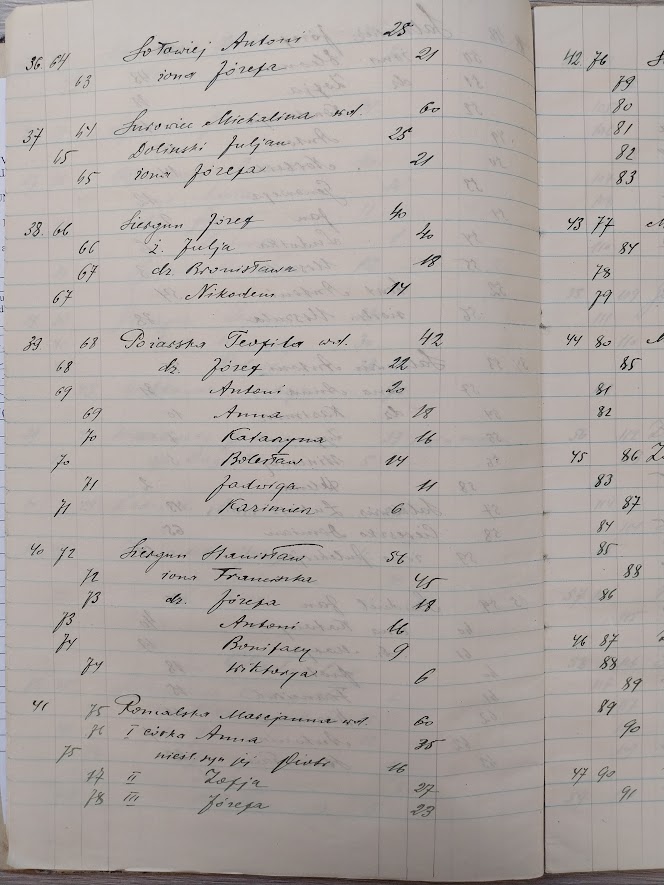 36 64 Sołowiej Antoni 25
63 żona Józefa 21
37 64 Surowiec Michalina wd. 60
65 Doliński Juljan 25
65 żona Józefa 21
38. 66 Siergun Józef 40
66 ż. Julja 40
67 dz Bronisława 18
67 Nikodem 14
39 68 Teofila wd. 42
68 dz. Józef 22
69 Antoni 20
69 Anna 18
70 Katarzyna 16
70 Bolesław 14
71 Jadwiga 11
71 Kazimierz 6
40 72 Siergun Stanisław 56
72 żona Franciszka 45
73 dz. Józefa 18
73 Antoni 16
74 Bonifacy 9
74 Wiktorya 6
41 75 Marcjanna wd. 60
76 I córka Anna 35
75 nieśl. syn jej Piotr 16
77 II Zofja 27
78 III Józefa 23
42 76
79
80
81
82
83
43 77
84
78
79
44 80
85
81
82
45 86
83
87
84
85
88
86
46 87
88
89
89
90
47 90
91